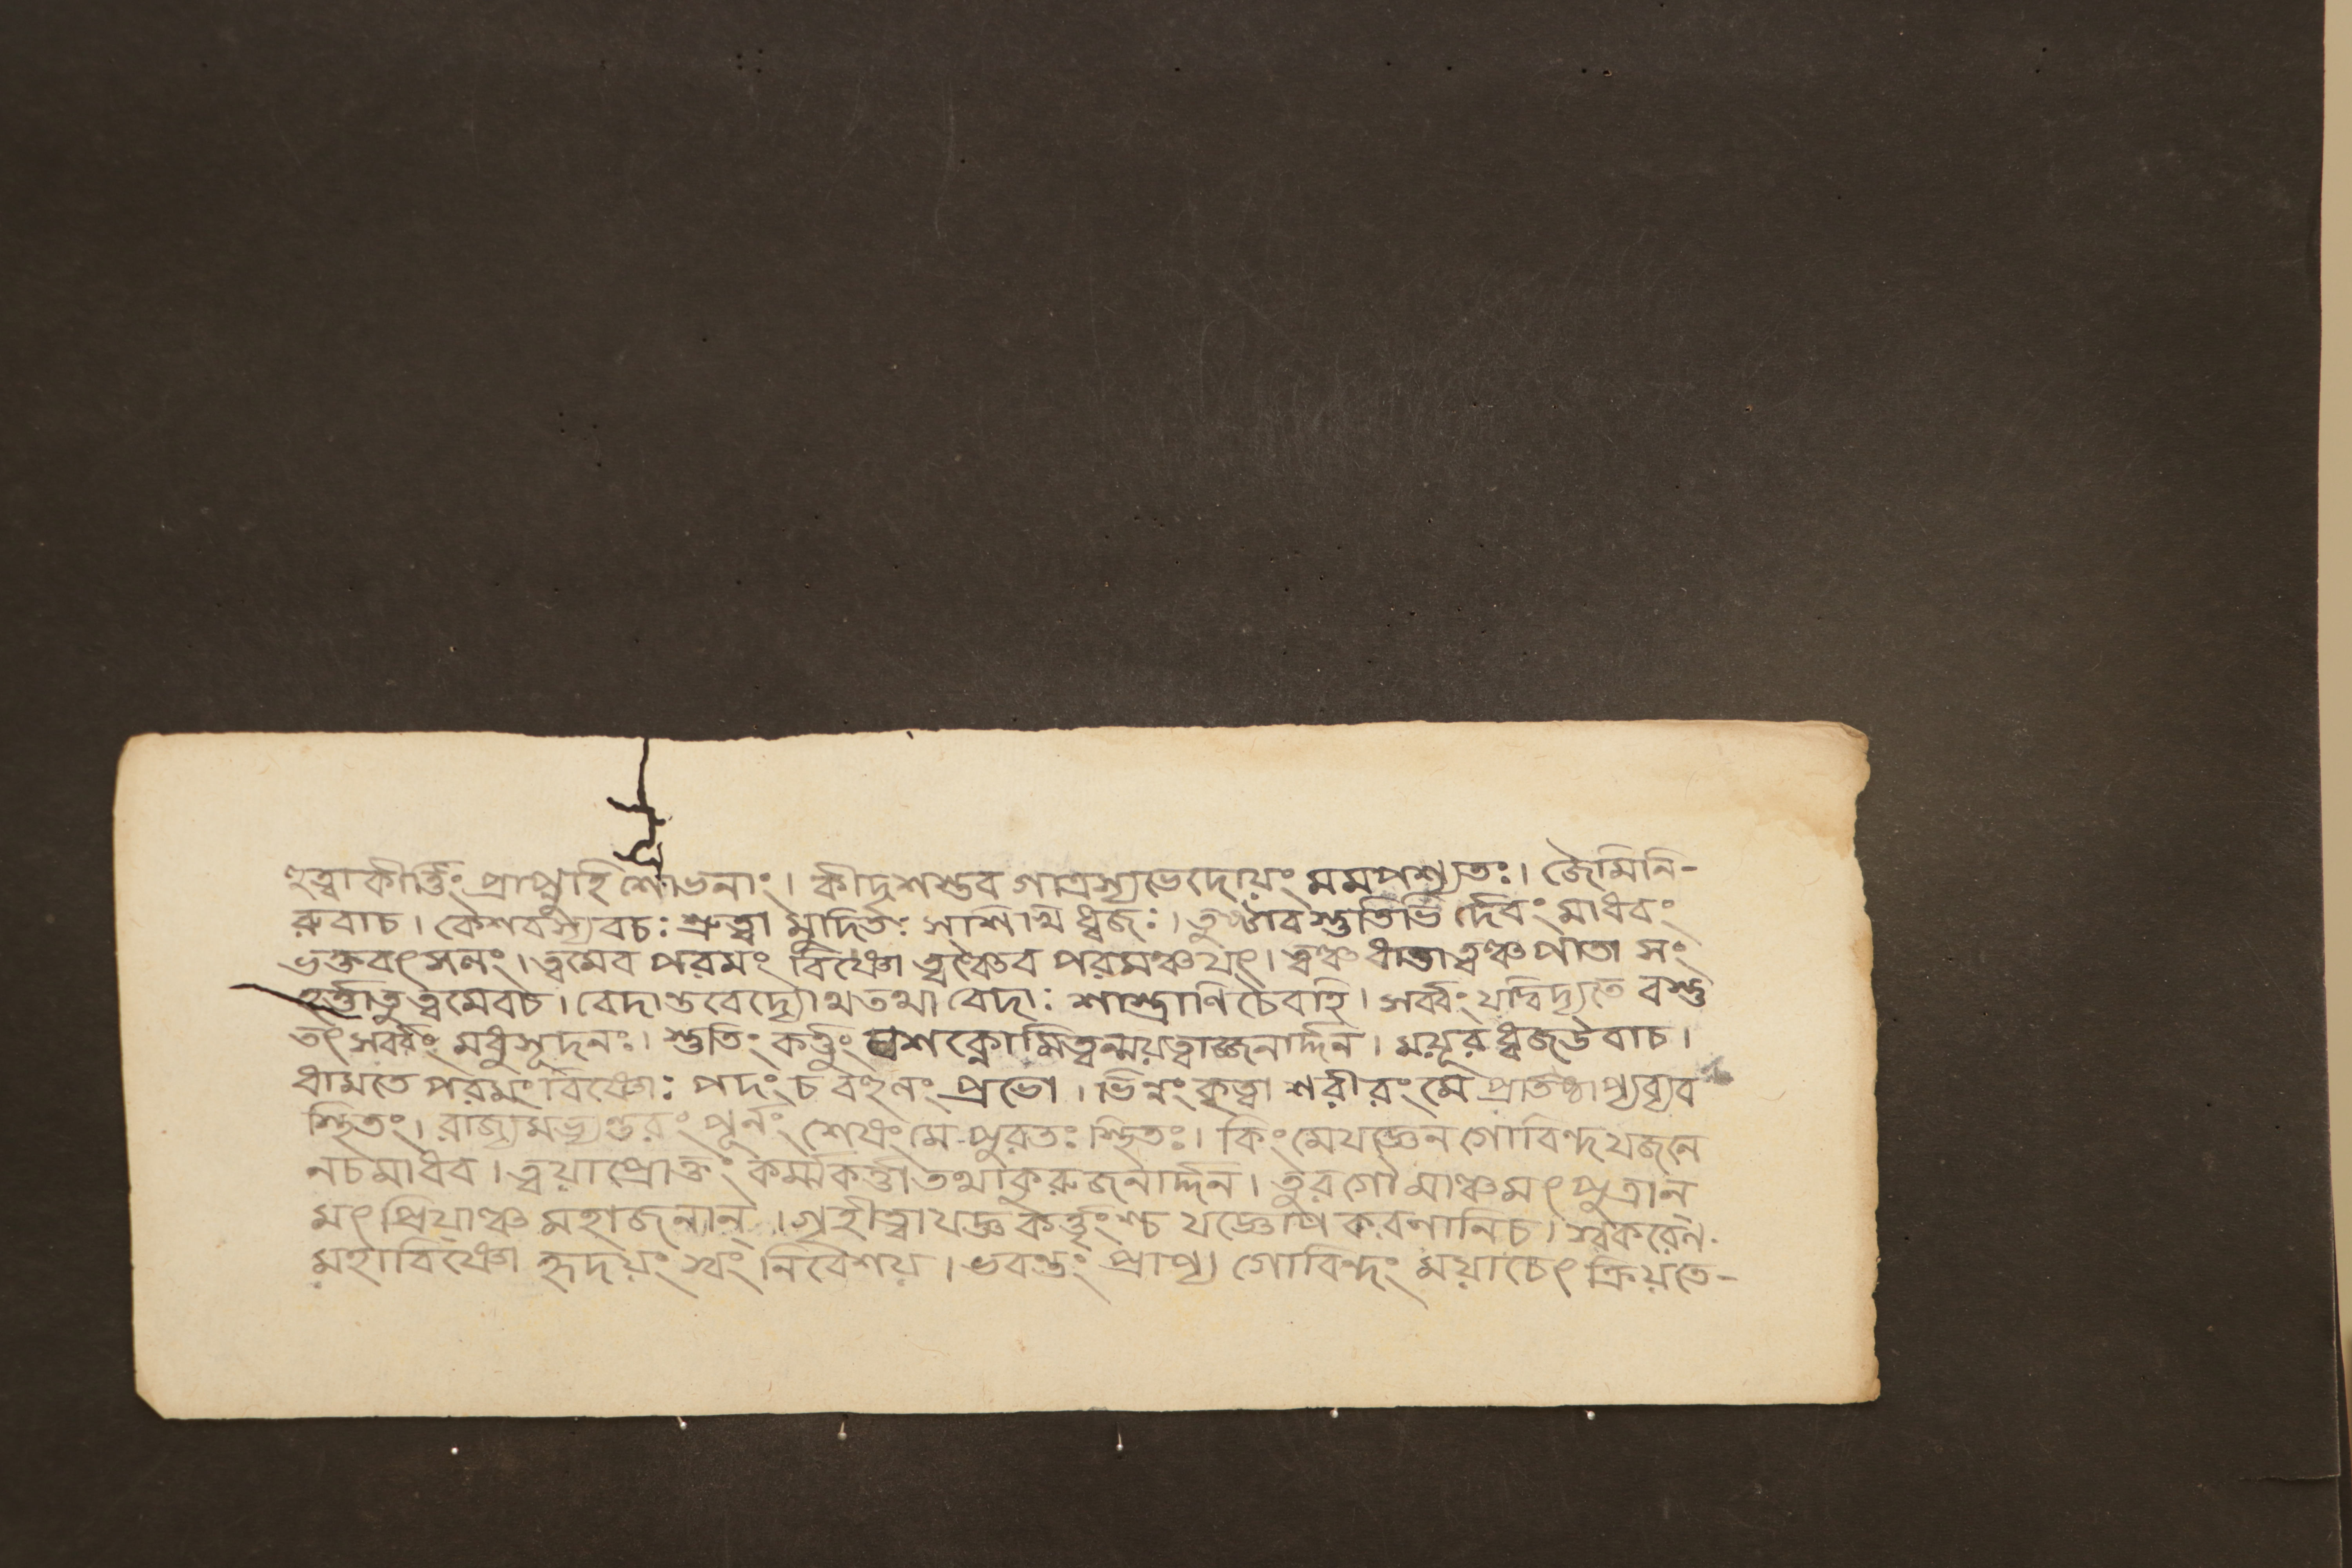 হত্বা কীর্ত্তিং প্রাপ্নুহি শোভনাং । কীদৃশস্তব গাত্রস্য ভেদোয়ং মমপশ্যতঃ । জৈমিনি-
রুবাচ । কেশবস্য বচঃ শ্রুত্বা মুদিতঃ সশিখিধ্বজঃ । তুষ্টাব স্তুতিভির্দেবং মাধবং
ভক্তবৎসলং । ত্বমেব পরমং বিষ্ণো ত্বঞ্চৈব পরমঞ্চযৎ । ত্বঞ্চ ধাতা ত্বঞ্চ পাতা সং
হর্ত্তাতু ত্বমেবচ । বেদান্তবেদ্যোথ তথা বেদাঃ শাস্ত্রাণি চৈবহি । সর্ব্বং যদ্বিদ্যতে বস্তু
তৎ সর্ব্বং মধুসূদনঃ । স্তুতিং কর্ত্তুং ন শক্নোমি ত্বন্ময়ত্বাজ্জনার্দ্দন । ময়ূরধ্বজউবাচ ।
ধামতে পরমং বিষ্ণোঃ পদং চ বহুলং প্রভো । ভিন্নং কৃত্বা শরীরং মে প্রতিষ্ঠাপ্য ব্যব
স্থিতং । রাজ্যমভ্যন্তরং পূর্নং শেষং মে পুরতঃ স্থিতঃ । কিং মে যজ্ঞেন গোবিন্দ যজনে
নচ মাধব । ত্বয়া প্রোক্তং কর্ম্মকর্ত্তা তথা কুরু জনার্দ্দন । তুরগৌ মাঞ্চ মৎ পুত্রান্
মৎ প্রিয়াঞ্চ মহাজনান্ । গৃহীত্বা যজ্ঞকর্ত্তৃংশ্চ যজ্ঞোপকরণানিচ । স্বকরেন
মহাবিষ্ণো হৃদয়ং স্বং নিবেশয় । ভবন্তং প্রাপ্য গোবিন্দং ময়াচেৎ ক্রিয়তে-